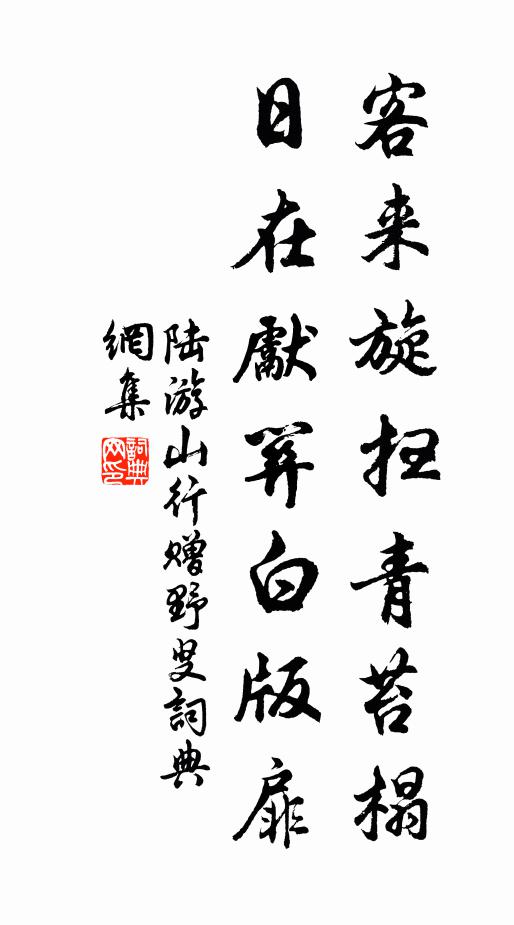 客来旋扫青苔榻
日在獻白版扉
陆游山行赠野叟詞典
網集
詞典网印